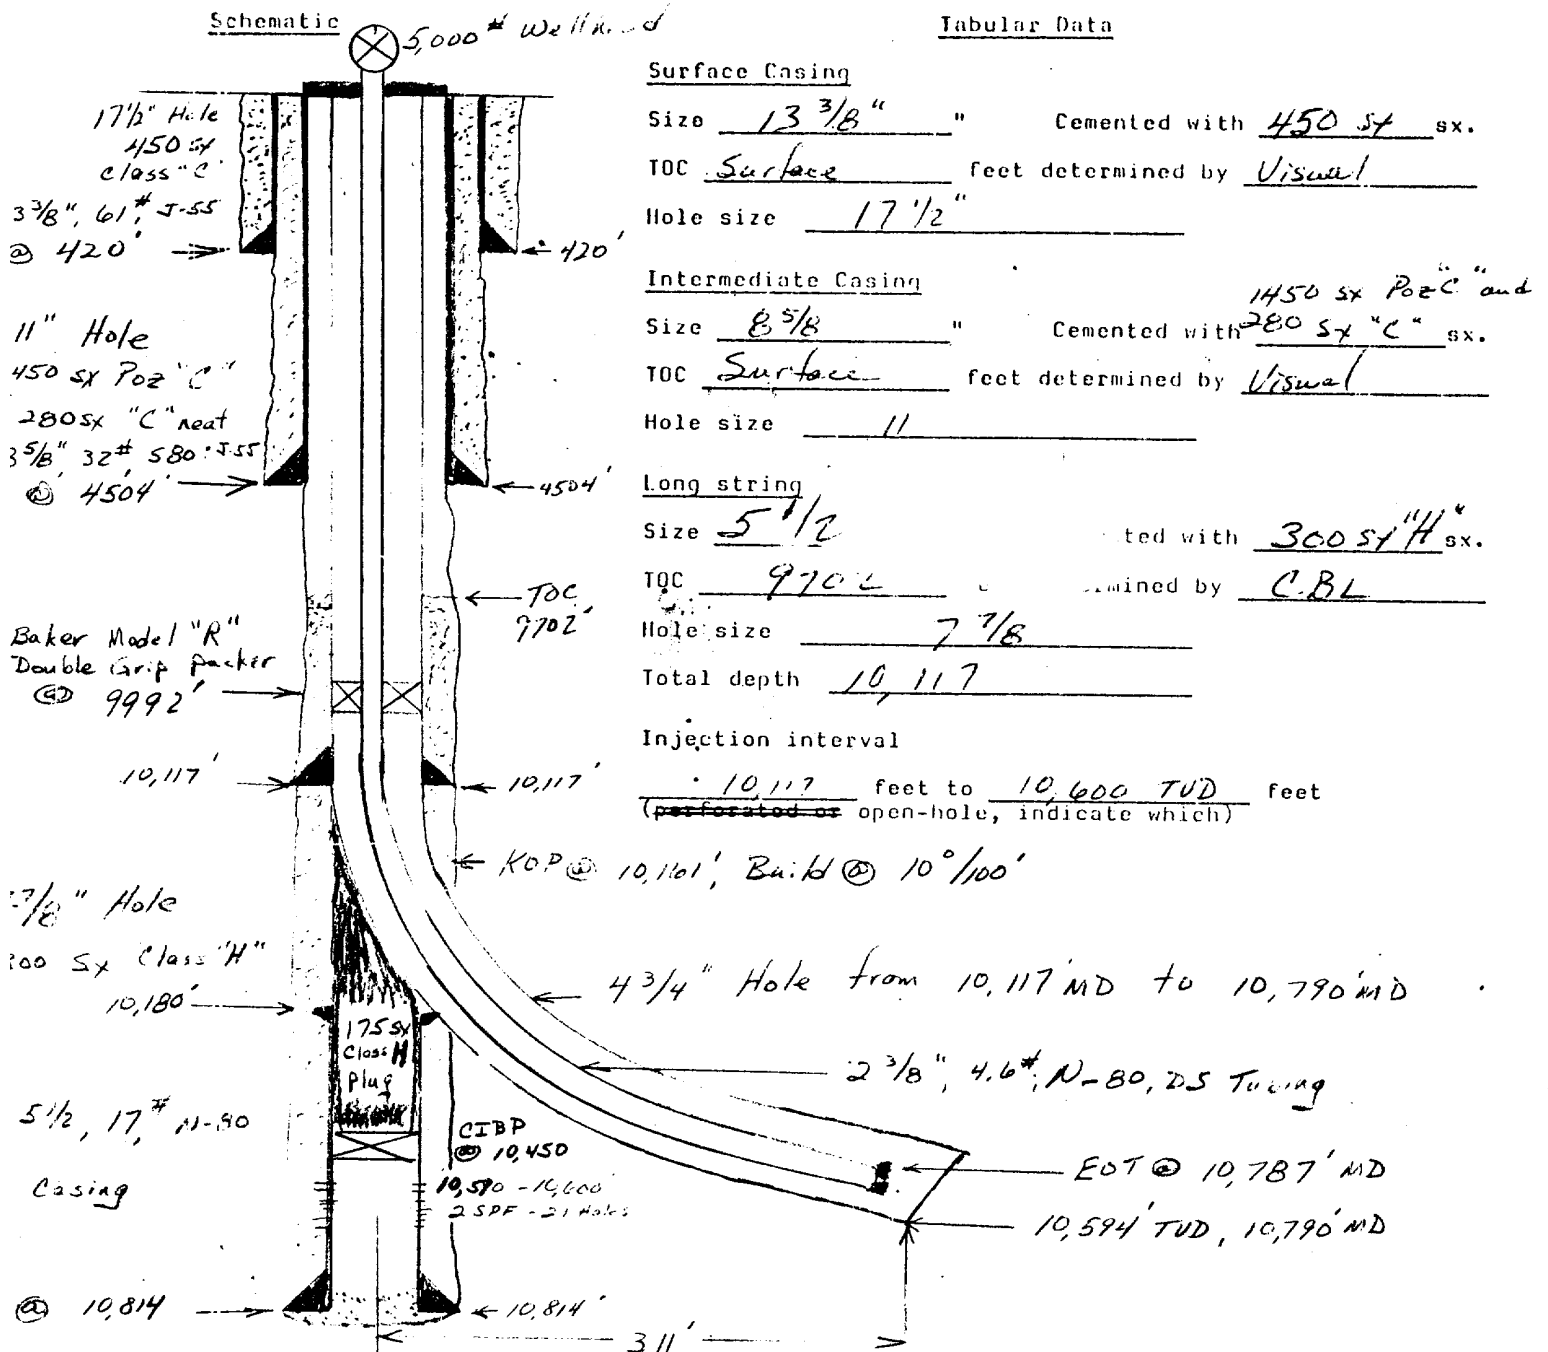 Schematic
5,000 #
17 1/2" Hole
450 sx
class "C"
3 3/8", 61#, J-55
@ 420'
420'
11" Hole
450 sx Poz "C"
280 sx "C" neat
5/8" 32# S80 : J-55
@ 4504'
4504'
TOC
9702'
Baker Model "R"
Double Grip packer
@ 9992'
10,117'
10,117'
KOP @ 10,161', Build @ 10°/100'
7/8" Hole
300 Sx Class "H"
10,180'
175 sx
Class H
Plug
4 3/4" Hole from 10,117' MD to 10,790' MD
2 3/8", 4.6#, N-80, DS Tubing
5 1/2, 17,# N-80
Casing
CIBP
@ 10,450
10,590 - 10,600'
2 SPF - 21 Holes
EOT @ 10,787' MD
10,594' TVD, 10,790' MD
@ 10,814
10,814'
311'
Tabular Data
Surface Casing
Size 13 3/8" " Cemented with 450 sx sx.
TOC Surface feet determined by Visual
Hole size 17 1/2"
Intermediate Casing
1450 sx Poz "C" and
Size 8 5/8 " Cemented with 280 Sx "C" sx.
TOC Surface feet determined by Visual
Hole size 11
Long string
Size 5 1/2 ted with 300 sx "H" sx.
TOC 9702 mined by C.BL
Hole size 7 7/8
Total depth 10,117
Injection interval
10,117 feet to 10,600 TVD feet
(perforated or open-hole, indicate which)